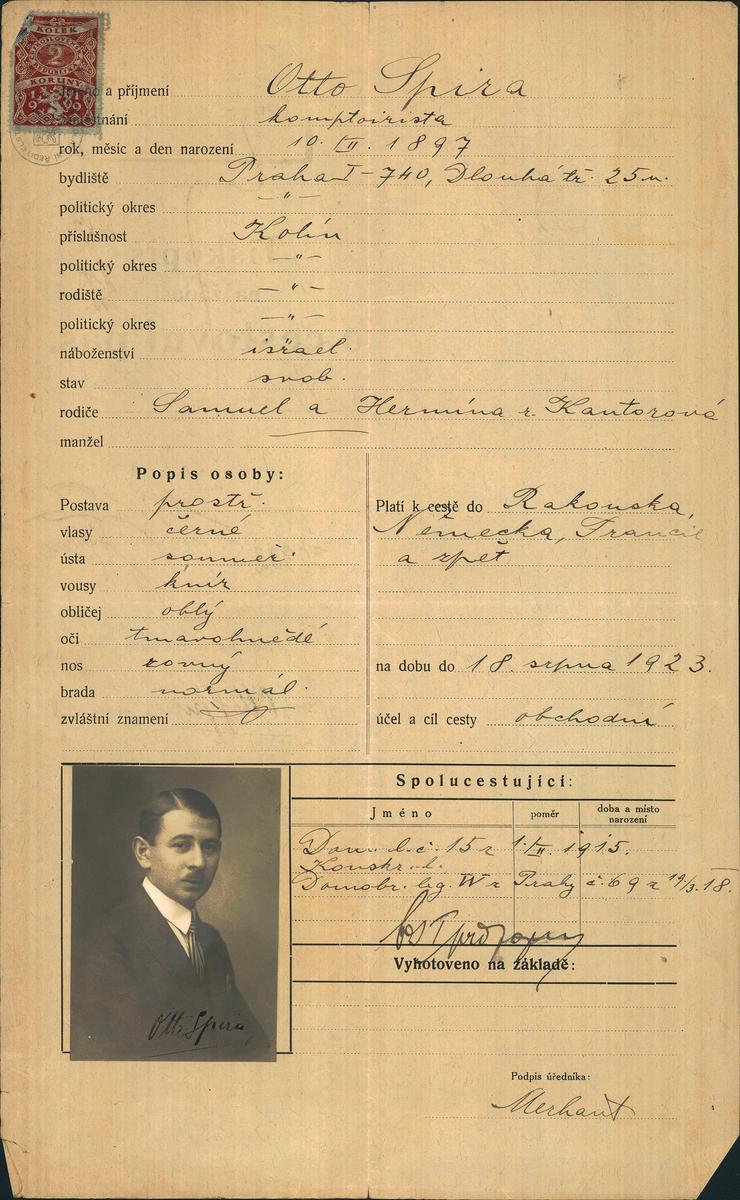 KOLEK
2
KORUNY
1919
a příjmení Otto Spira
komptoirista
rok, měsíc a den narození 10. III. 1897
bydliště Praha I - 740, Dlouhá tř. 25 n.
politický okres — " —
příslušnost Kolín
politický okres — " —
rodiště — " —
politický okres — " —
náboženství israel.
stav svob.
rodiče Samuel a Hermína r. Kantorová
manžel
Popis osoby:
Postava prostř.
vlasy černé
ústa souměř.
vousy knír
obličej oblý
oči tmavohnědé
nos rovný
brada normál.
zvláštní znamení
Platí k cestě do Rakouska,
Německa, Francie
a zpět
na dobu do 18. srpna 1923.
účel a cíl cesty obchodní
Spolucestující:
Jméno
poměr
doba a místo narození
Dom. l. č. 15 z 1. III. 1915.
Konskr. l.
Domobr. leg. W z Prahy č. 69 z 19/3. 18.
Vyhotoveno na základě:
Otto Spira
Podpis úředníka:
Merhaut